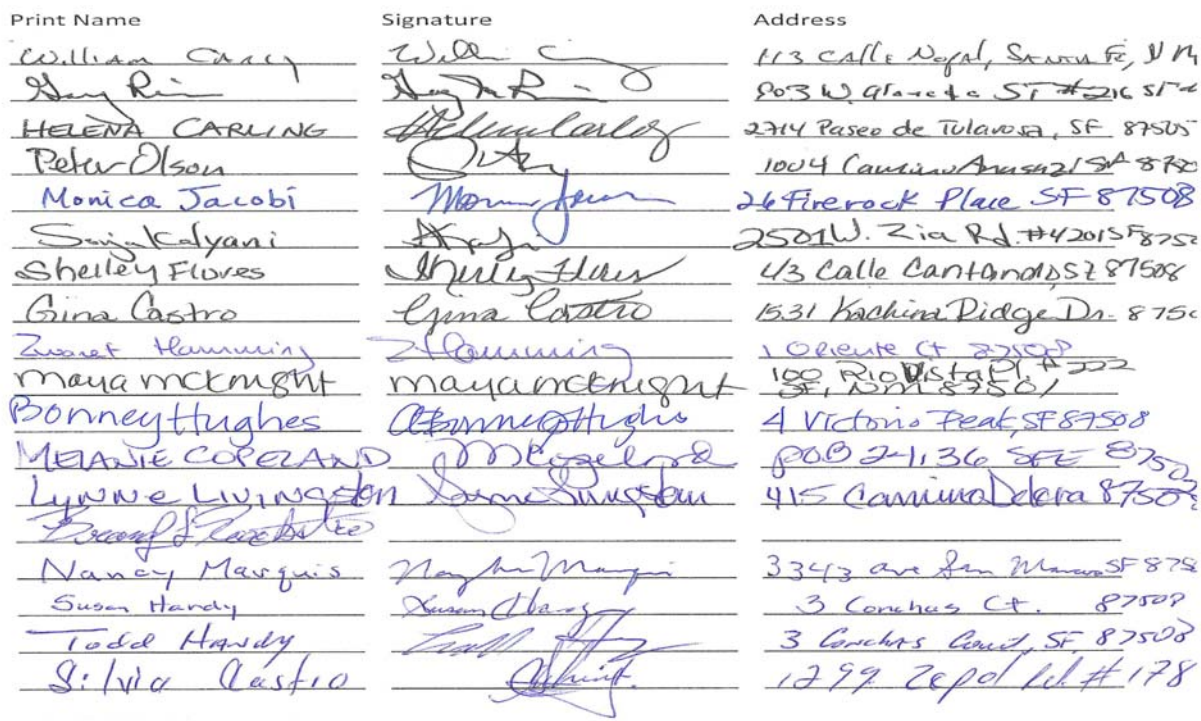 Print Name Signature Address
William Carey 113 Calle Nopal, Santa Fe, NM
Gary 803 W. ST #216
HELENA CARLING Helena Carling 2714 Paseo de Tularosa, SF 87505
Peter Olson 1004 Camino Anasazi
Monica Jacobi 26 Firerock Place SF 87508
Kalyani 2501 W. Zia Rd. #4201 SF
Shelley Flores Shelley Flores 43 Calle Cantando SF 87508
Gina Castro Gina Castro 1531 Kachina Ridge Dr. 875
Hamming ZHamming 1 Oriente Ct 87508
maya mcknight maya mcknight 100 Rio Vista Pl. #222
SF, NM 87501
Bonney Hughes Bonney Hughes 4 Victorio Peak, SF 87508
MELANIE COPELAND MCopeland POB 24136 SFE 8750
LYNNE LIVINGSTON Lynne Livingston 415 Camino
Nancy Marquis 3343 ave San SF 875
Susan Handy Susan 3 Conchas Ct. 87508
Todd HANDY 3 Conchas Court, SF, 87508
Silvia Castro 1299 #178